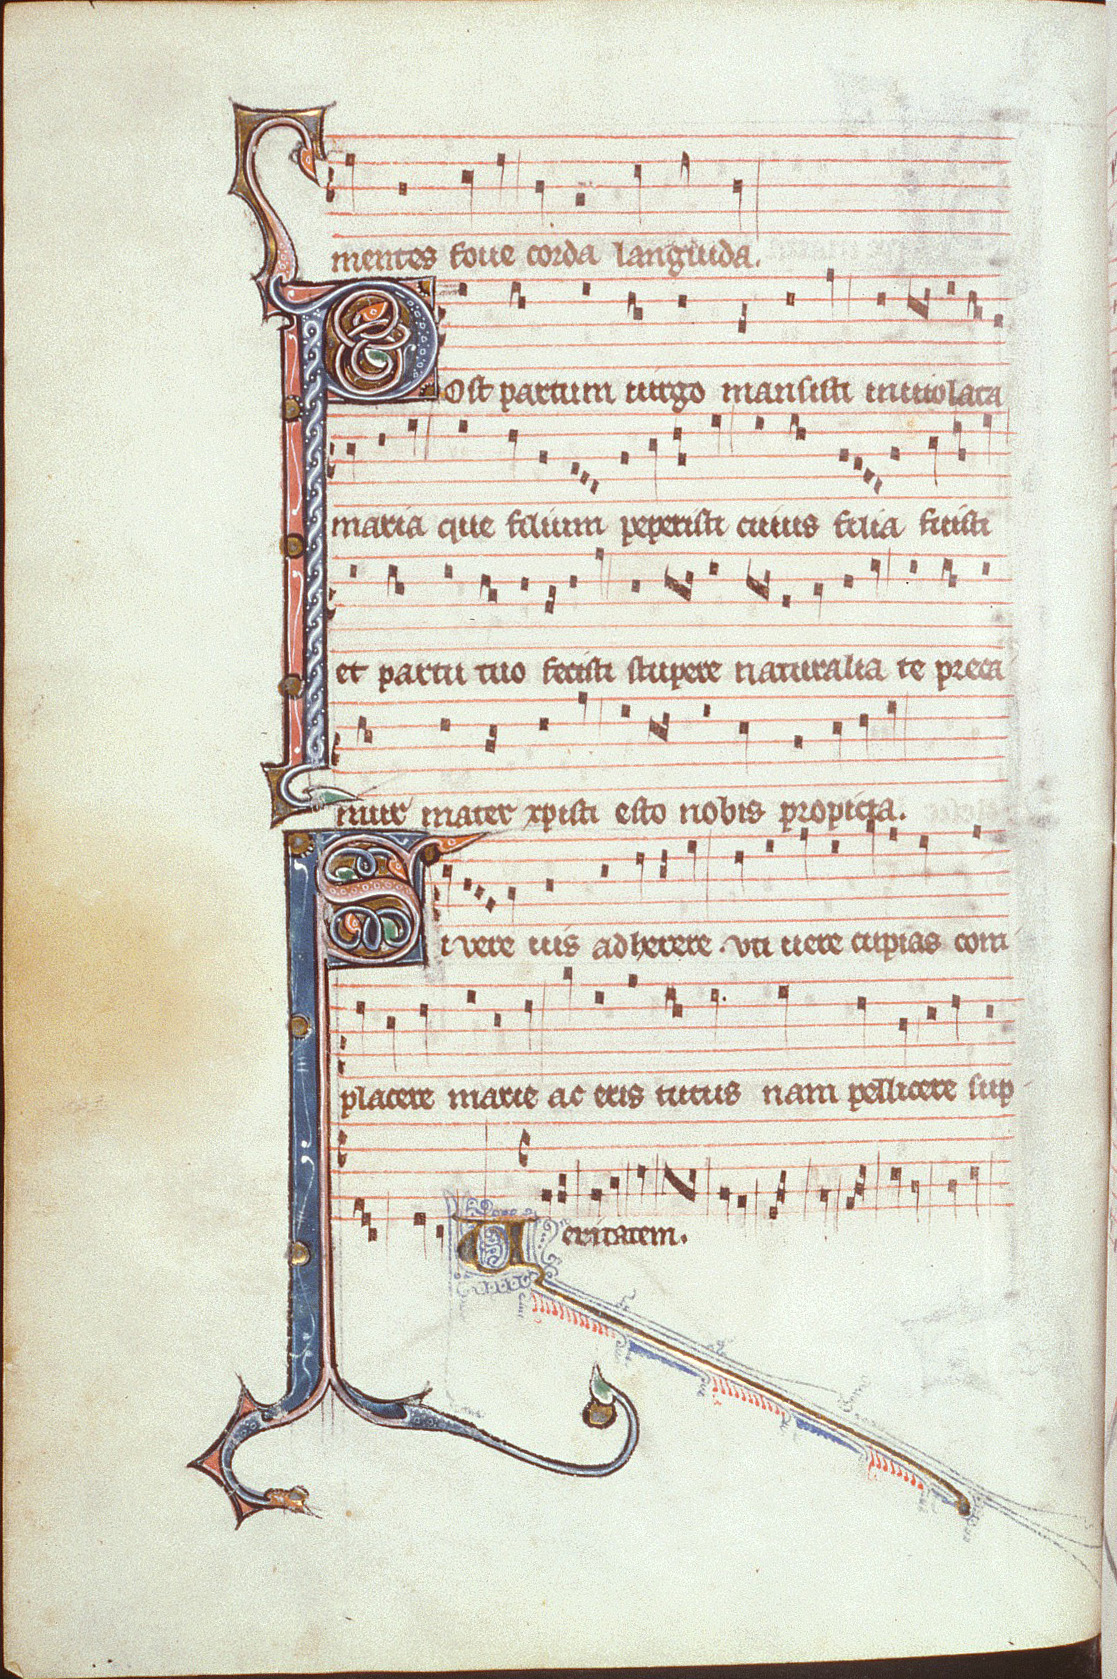 mentes foue corda languida.
Post partum uirgo mansisti inuiolata
maria que filium peperisti cuius filia fuisti
et partu tuo fecisti stupere naturalia te preca
mur mater xpisti esto nobis propicia.
Si vere uis adherere . vti uere cupias com
placere marie ac eris tutus nam pellicere sup
Veritatem.